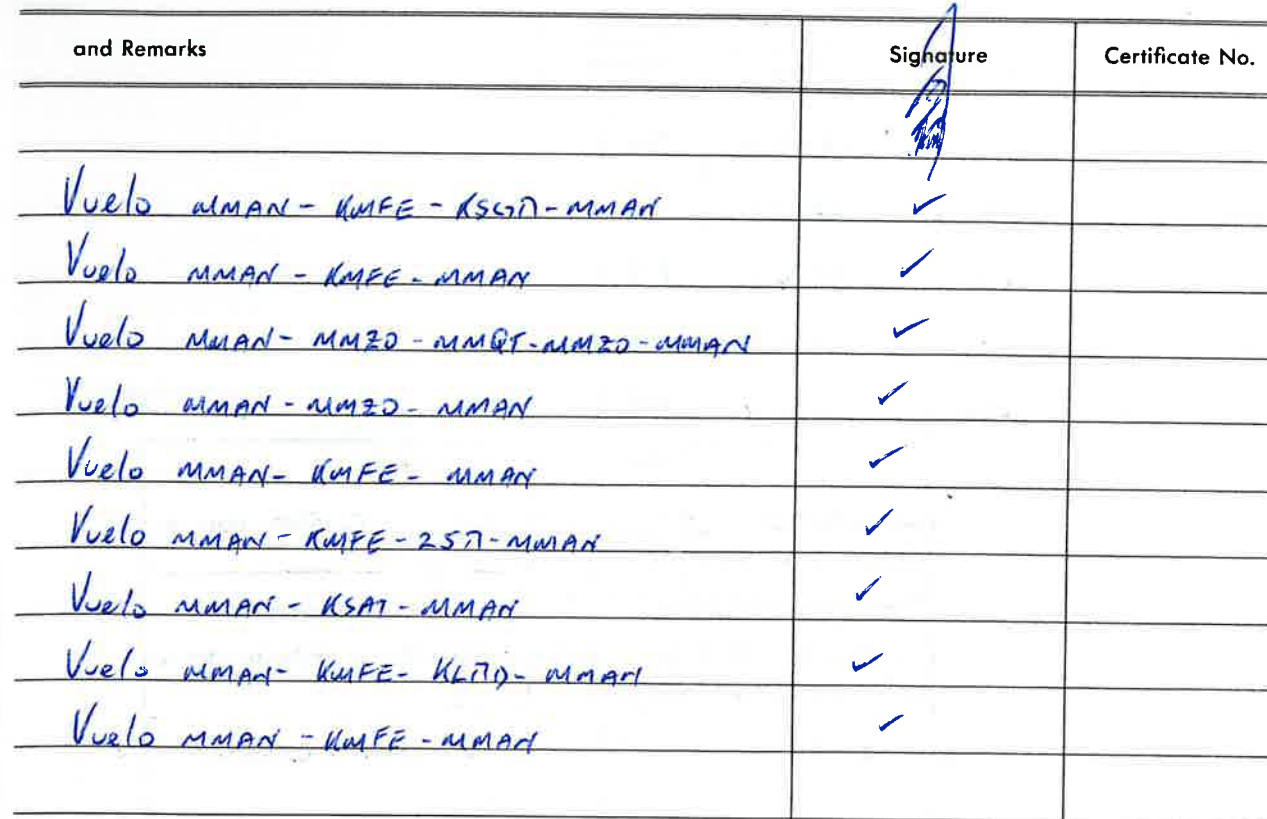 and Remarks Signature Certificate No.
Vuelo MMAN - KMFE - KSGR - MMAN ✓
Vuelo MMAN - KMFE - MMAN ✓
Vuelo MMAN - MMZO - MMQT - MMZO - MMAN ✓
Vuelo MMAN - MMZO - MMAN ✓
Vuelo MMAN - KMFE - MMAN ✓
Vuelo MMAN - KMFE - 25R - MMAN ✓
Vuelo MMAN - KSAT - MMAN ✓
Vuelo MMAN - KMFE - KLRD - MMAN ✓
Vuelo MMAN - KMFE - MMAN ✓